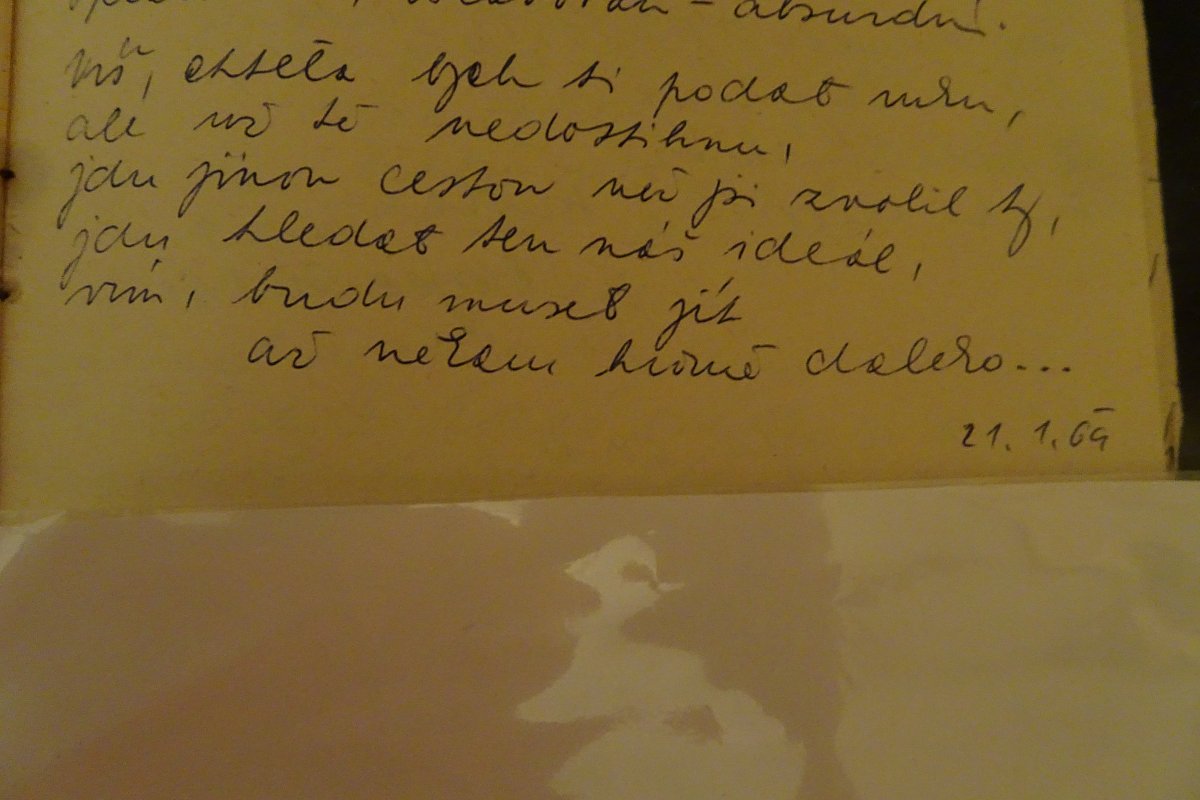 – absurdní.
chtěla bych ti podat ruku,
ale už tě nedostihnu,
jdu jinou cestou než jsi zvolil ty,
jdu hledat ten náš ideál,
vím, budu muset jít
až někam hrozně daleko...
21. 1. 69